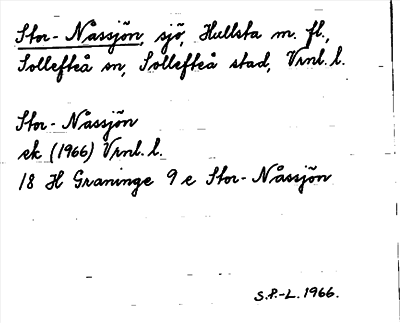 Stor-Nåssjön, sjö, Hullsta m. fl.,
Sollefteå sn, Sollefteå stad, Vrnl. l.
Stor-Nåssjön
ek (1966) Vrnl. l.
18 H Graninge 9 e Stor-Nåssjön
S.P.-L. 1966.